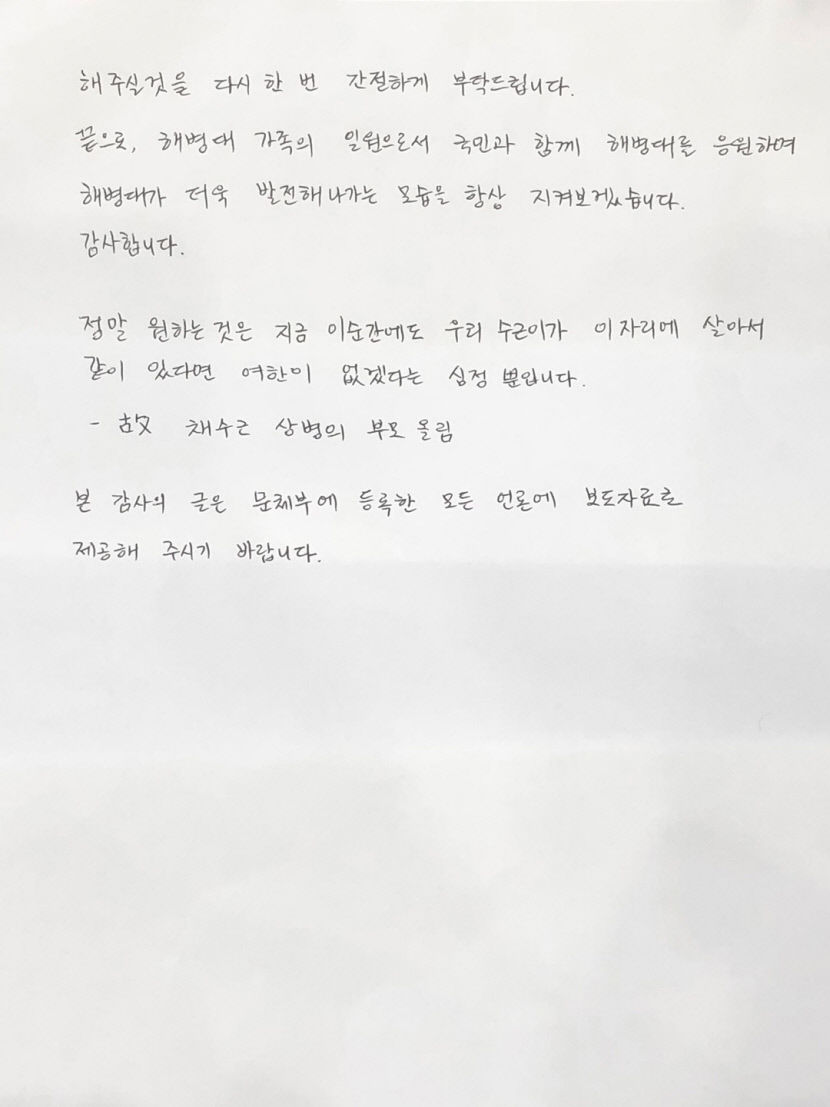 해 주실것을 다시 한 번 간절하게 부탁드립니다.
끝으로, 해병대 가족의 일원으로서 국민과 함께 해병대를 응원하며
해병대가 더욱 발전해 나가는 모습을 항상 지켜보겠습니다.
감사합니다.
정말 원하는 것은 지금 이순간에도 우리 수근이가 이 자리에 살아서
같이 있다면 여한이 없겠다는 심정 뿐입니다.
- 故 채수근 상병의 부모 올림
본 감사의 글은 문체부에 등록한 모든 언론에 보도자료로
제공해 주시기 바랍니다.